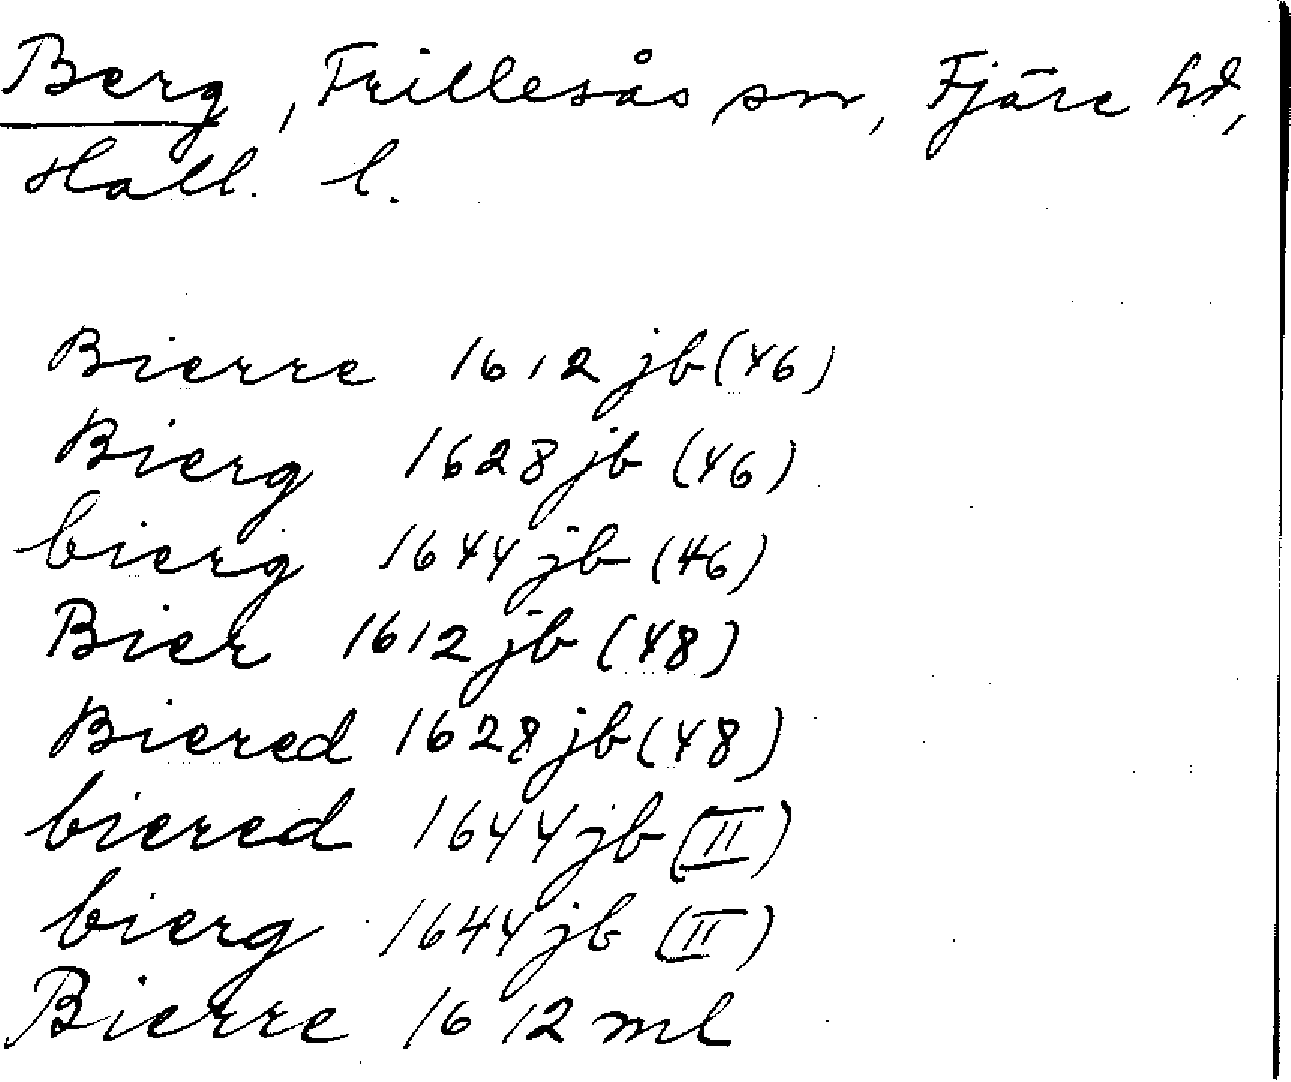 Berg, Frillesås sn, Fjäre hd,
Hall. l.
Bierre 1612 jb (46)
Bierg 1628 jb (46)
bierg 1644 jb (46)
Bier 1612 jb (48)
Biered 1628 jb (48)
biered 1644 jb (II)
bierg 1644 jb (II)
Bierre 1612 ml